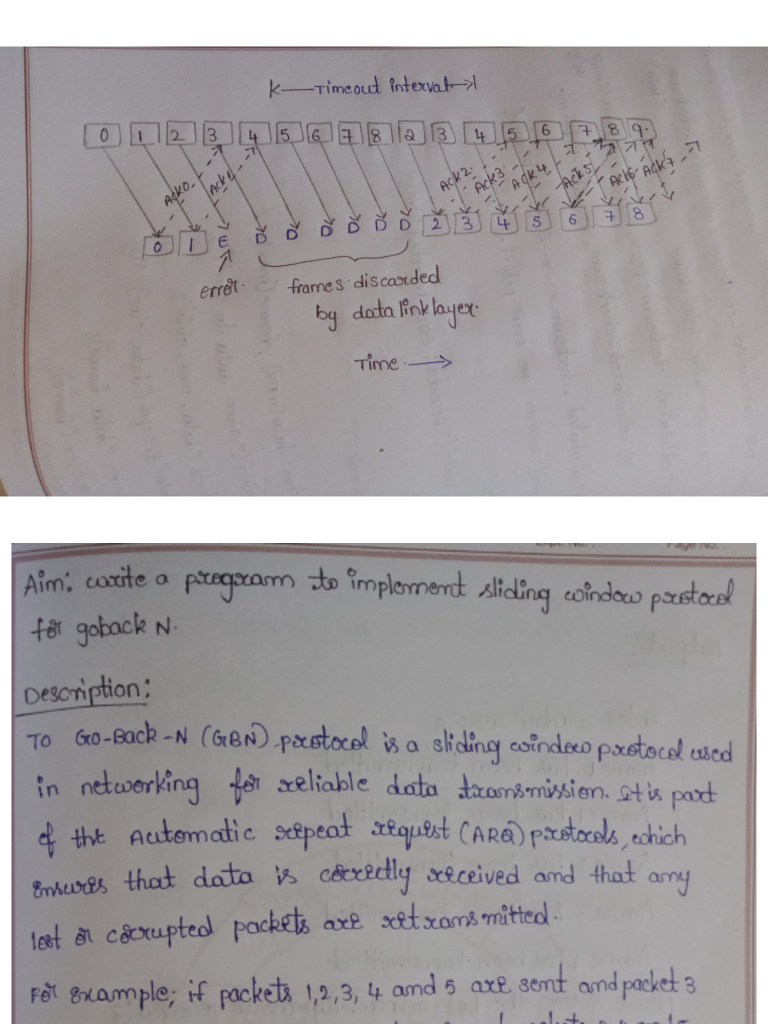 Timeout interval
0 1 2 3 4 5 6 7 8 2 3 4 5 6 7 8 9.
Ack0 Ack1 Ack2 Ack3 Ack4 Ack5 Ack6 Ack7
0 1 E D D D D D D 2 3 4 5 6 7 8
error. frames discarded
by datalinklayer.
Time
Page No. :
Aim: write a program to implement sliding window protocol
for goback N.
Description:
To Go-Back-N (GBN) protocol is a sliding window protocol used
in networking for reliable data transmission. It is part
of the Automatic repeat request (ARQ) protocols, which
ensures that data is correctly received and that any
lost or corrupted packets are retransmitted.
For Example; if packets 1,2,3, 4 and 5 are sent and packet 3